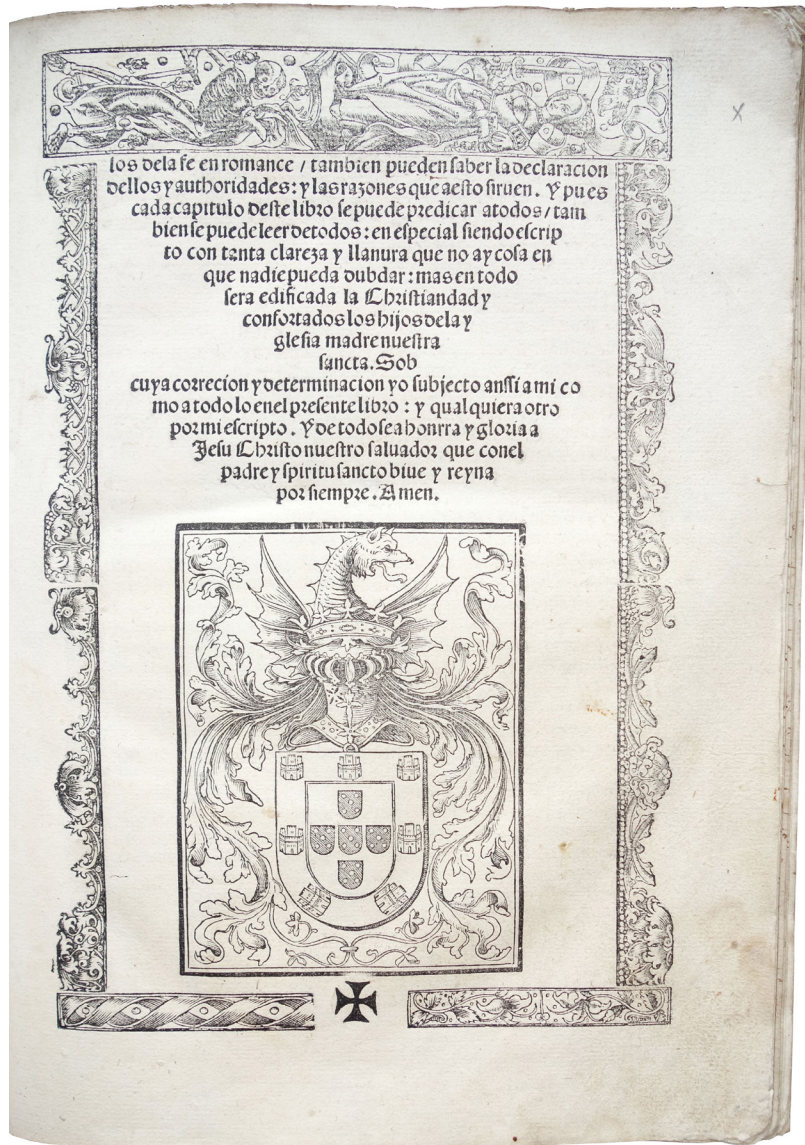 los dela fe en romance / tambien pueden saber la declaracion
dellos y authoridades: y las razones que a esto siruen. Y pues
cada capitulo deste libro se puede predicar a todos / tam
bien se puede leer de todos: en especial siendo escrip
to con tanta clareza y llanura que no ay cosa en
que nadie pueda dubdar: mas en todo
sera edificada la Christiandad y
confortados los hijos dela y
glesia madre nuestra
sancta. Sob
cuya correcion y determinacion yo subjecto anssi a mi co
mo a todo lo enel presente libro: y qualquiera otro
por mi escripto. Y de todo sea honrra y gloria a
Jesu Christo nuestro saluador que conel
padre y spiritu sancto biue y reyna
por siempre. Amen.